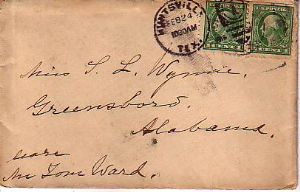 HUNTSVILLE
FEB 24
TEX.
Miss S. L. Wynne,
Greensboro,
Alabama.
care
Mr Tom Ward.